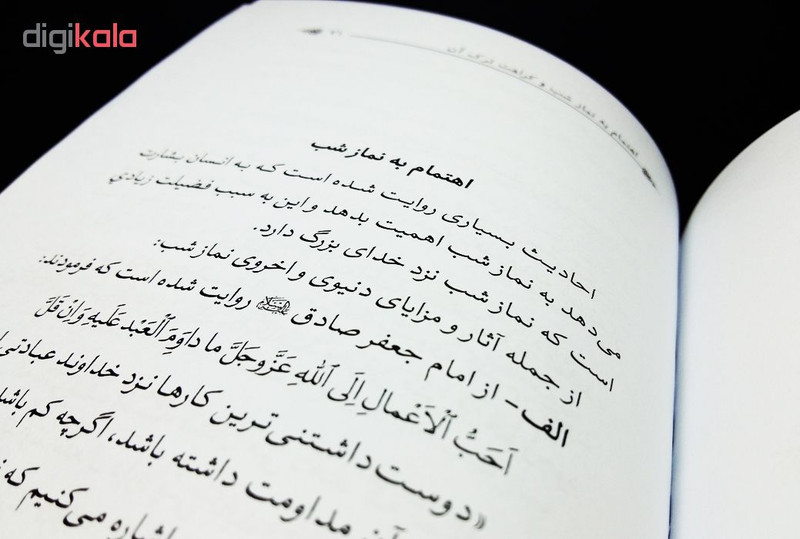 digikala
اهتمام به نماز شب و کراهت ترک آن ۷۱
اهتمام به نماز شب
احادیث بسیاری روایت شده است که به انسان بشارت
می‌دهد به نماز شب اهمیت بدهد و این به سبب فضیلت زیادی
است که نماز شب نزد خدای بزرگ دارد.
از جمله آثار و مزایای دنیوی و اخروی نماز شب:
الف- از امام جعفر صادق علیه‌السلام روایت شده است که فرمودند:
اَحَبُّ الْاَعْمالِ اِلَی اللهِ عَزَّ وَ جَلَّ ما داوَمَ الْعَبْدُ عَلَیهِ وَاِنْ قَلَّ
«دوست داشتنی ترین کارها نزد خداوند عبادتی
آن مداومت داشته باشد، اگرچه کم باشد
اشاره می‌کنیم که